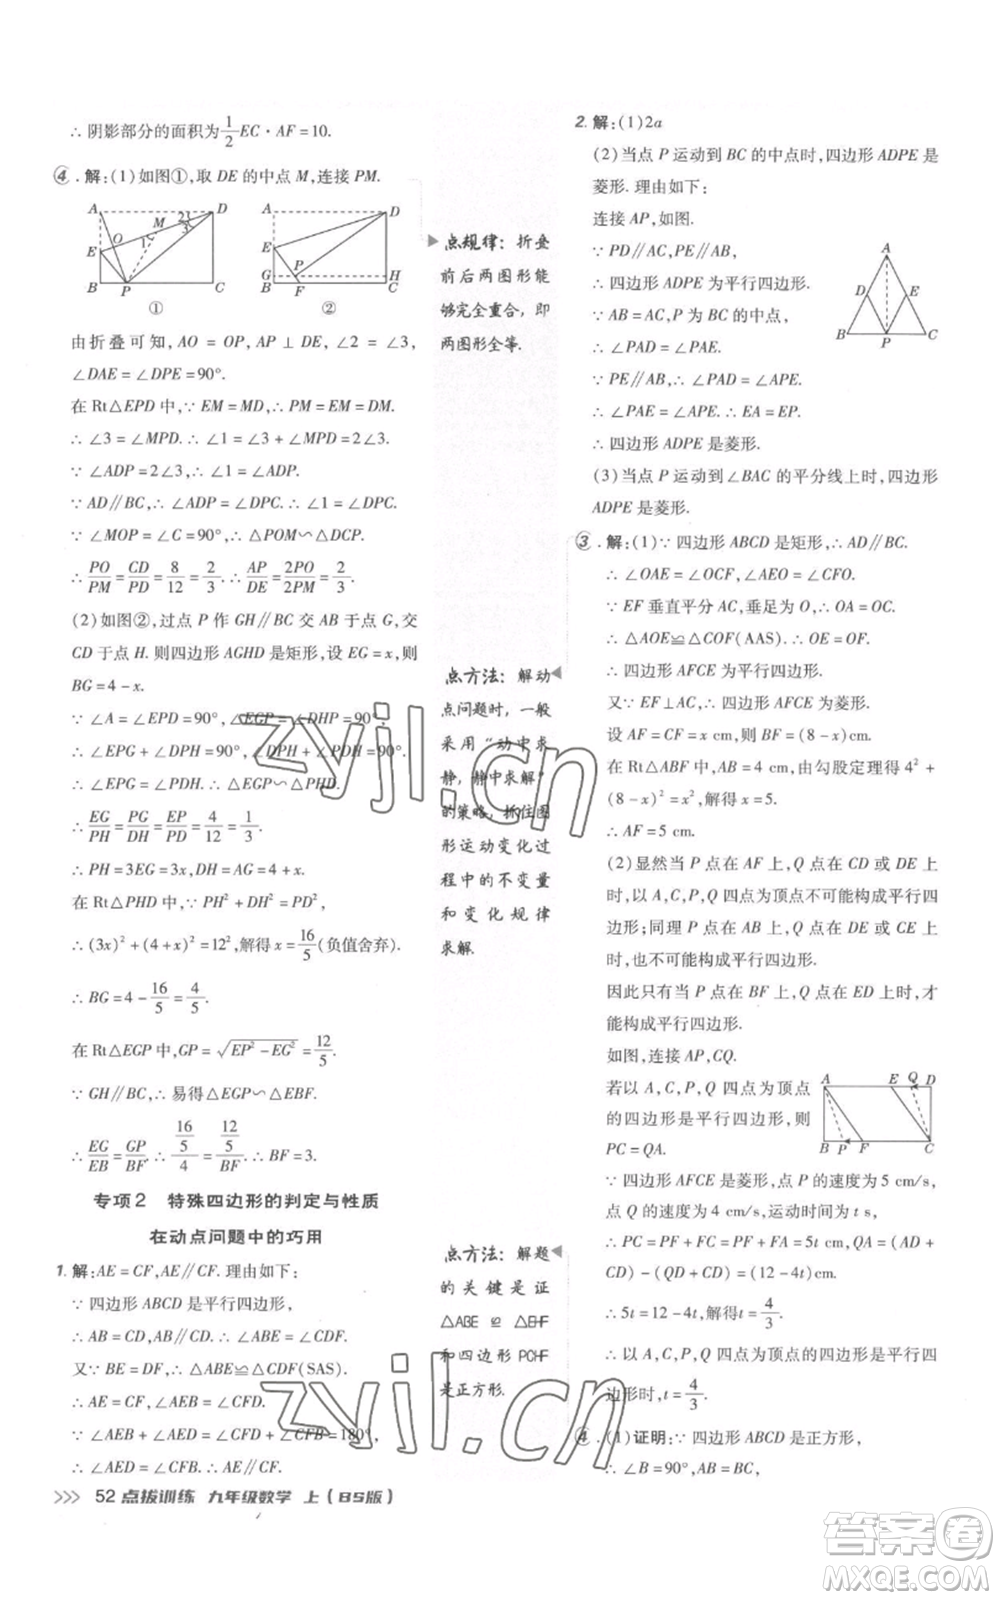 ∴ 阴影部分的面积为1/2 EC · AF = 10.
④. 解:(1)如图①,取 DE 的中点 M,连接 PM.
A M 2 D
3
O 1
E
B P C
①
A D
E
G P H
B F C
②
由折叠可知, AO = OP, AP ⊥ DE, ∠2 = ∠3,
∠DAE = ∠DPE = 90°.
在 Rt△EPD 中,∵ EM = MD,∴ PM = EM = DM.
∴ ∠3 = ∠MPD. ∴ ∠1 = ∠3 + ∠MPD = 2∠3.
∵ ∠ADP = 2∠3,∴ ∠1 = ∠ADP.
∵ AD∥BC,∴ ∠ADP = ∠DPC. ∴ ∠1 = ∠DPC.
∵ ∠MOP = ∠C = 90°,∴ △POM∽△DCP.
∴ PO/PM = CD/PD = 8/12 = 2/3. ∴ AP/DE = 2PO/2PM = 2/3.
(2)如图②,过点 P 作 GH∥BC 交 AB 于点 G,交
CD 于点 H. 则四边形 AGHD 是矩形,设 EG = x,则
BG = 4 - x.
∵ ∠A = ∠EPD = 90°, ∠EGP = ∠DHP = 90°,
∴ ∠EPG + ∠DPH = 90°, ∠DPH + ∠PDH = 90°.
∴ ∠EPG = ∠PDH. ∴ △EGP∽△PHD.
∴ EG/PH = PG/DH = EP/PD = 4/12 = 1/3.
∴ PH = 3EG = 3x, DH = AG = 4 + x.
在 Rt△PHD 中,∵ PH² + DH² = PD²,
∴ (3x)² + (4 + x)² = 12²,解得 x = 16/5(负值舍弃).
∴ BG = 4 - 16/5 = 4/5.
在 Rt△EGP 中, GP = √(EP² - EG²) = 12/5.
∵ GH∥BC,∴ 易得△EGP∽△EBF.
∴ EG/EB = GP/BF. ∴ (16/5)/4 = (12/5)/BF. ∴ BF = 3.
专项 2 特殊四边形的判定与性质
在动点问题中的巧用
1. 解: AE = CF, AE∥CF. 理由如下:
∵ 四边形 ABCD 是平行四边形,
∴ AB = CD, AB∥CD. ∴ ∠ABE = ∠CDF.
又∵ BE = DF,∴ △ABE≌△CDF(SAS).
∴ AE = CF, ∠AEB = ∠CFD.
∵ ∠AEB + ∠AED = ∠CFD + ∠CFB = 180°,
∴ ∠AED = ∠CFB. ∴ AE∥CF.
点规律: 折叠
前后两图形能
够完全重合, 即
两图形全等.
点方法: 解动
点问题时, 一般
采用“动中求
静, 静中求解”
的策略, 抓住图
形运动变化过
程中的不变量
和变化规律
求解.
点方法: 解题
的关键是证
△ABE ≌ △EHF
和四边形 PCHF
是正方形.
2. 解:(1)2a
(2)当点 P 运动到 BC 的中点时,四边形 ADPE 是
菱形. 理由如下:
连接 AP,如图.
∵ PD∥AC, PE∥AB,
∴ 四边形 ADPE 为平行四边形.
∵ AB = AC, P 为 BC 的中点,
∴ ∠PAD = ∠PAE.
∵ PE∥AB,∴ ∠PAD = ∠APE.
∴ ∠PAE = ∠APE. ∴ EA = EP.
∴ 四边形 ADPE 是菱形.
A
D E
B P C
(3)当点 P 运动到∠BAC 的平分线上时,四边形
ADPE 是菱形.
③. 解:(1)∵ 四边形 ABCD 是矩形,∴ AD∥BC.
∴ ∠OAE = ∠OCF, ∠AEO = ∠CFO.
∵ EF 垂直平分 AC,垂足为 O,∴ OA = OC.
∴ △AOE≌△COF(AAS). ∴ OE = OF.
∴ 四边形 AFCE 为平行四边形.
又∵ EF⊥AC,∴ 四边形 AFCE 为菱形.
设 AF = CF = x cm,则 BF = (8 - x)cm.
在 Rt△ABF 中, AB = 4 cm,由勾股定理得 4² +
(8 - x)² = x²,解得 x = 5.
∴ AF = 5 cm.
(2)显然当 P 点在 AF 上, Q 点在 CD 或 DE 上
时,以 A, C, P, Q 四点为顶点不可能构成平行四
边形;同理 P 点在 AB 上, Q 点在 DE 或 CE 上
时,也不可能构成平行四边形.
因此只有当 P 点在 BF 上, Q 点在 ED 上时,才
能构成平行四边形.
如图,连接 AP, CQ.
若以 A, C, P, Q 四点为顶点
的四边形是平行四边形,则
PC = QA.
A E Q D
B P F C
∵ 四边形 AFCE 是菱形,点 P 的速度为 5 cm/s,
点 Q 的速度为 4 cm/s,运动时间为 t s,
∴ PC = PF + CF = PF + AF = 5t cm, QA = (AD +
CD) - (CD + QD) = (12 - 4t)cm.
∴ 5t = 12 - 4t,解得 t = 4/3.
∴ 以 A, C, P, Q 四点为顶点的四边形是平行四
边形时, t = 4/3.
④. (1)证明:∵ 四边形 ABCD 是正方形,
∴ ∠B = ∠D = 90°, AB = AD.
>>> 52 点拨训练 九年级数学 上(BS版)
zyjl.cn
zyjl.cn
答案卷
MXQE.COM